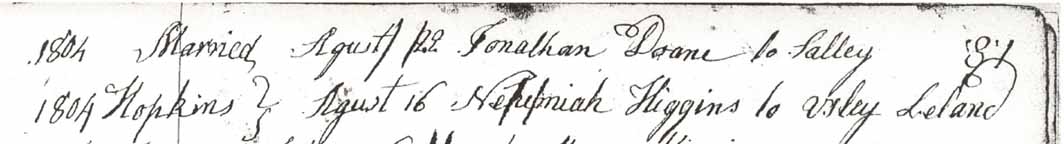 1804 Married Agust 22 Jonathan Doane to Salley
1804 Hopkins } Agust 16 Nehemiah Higgins to Leland